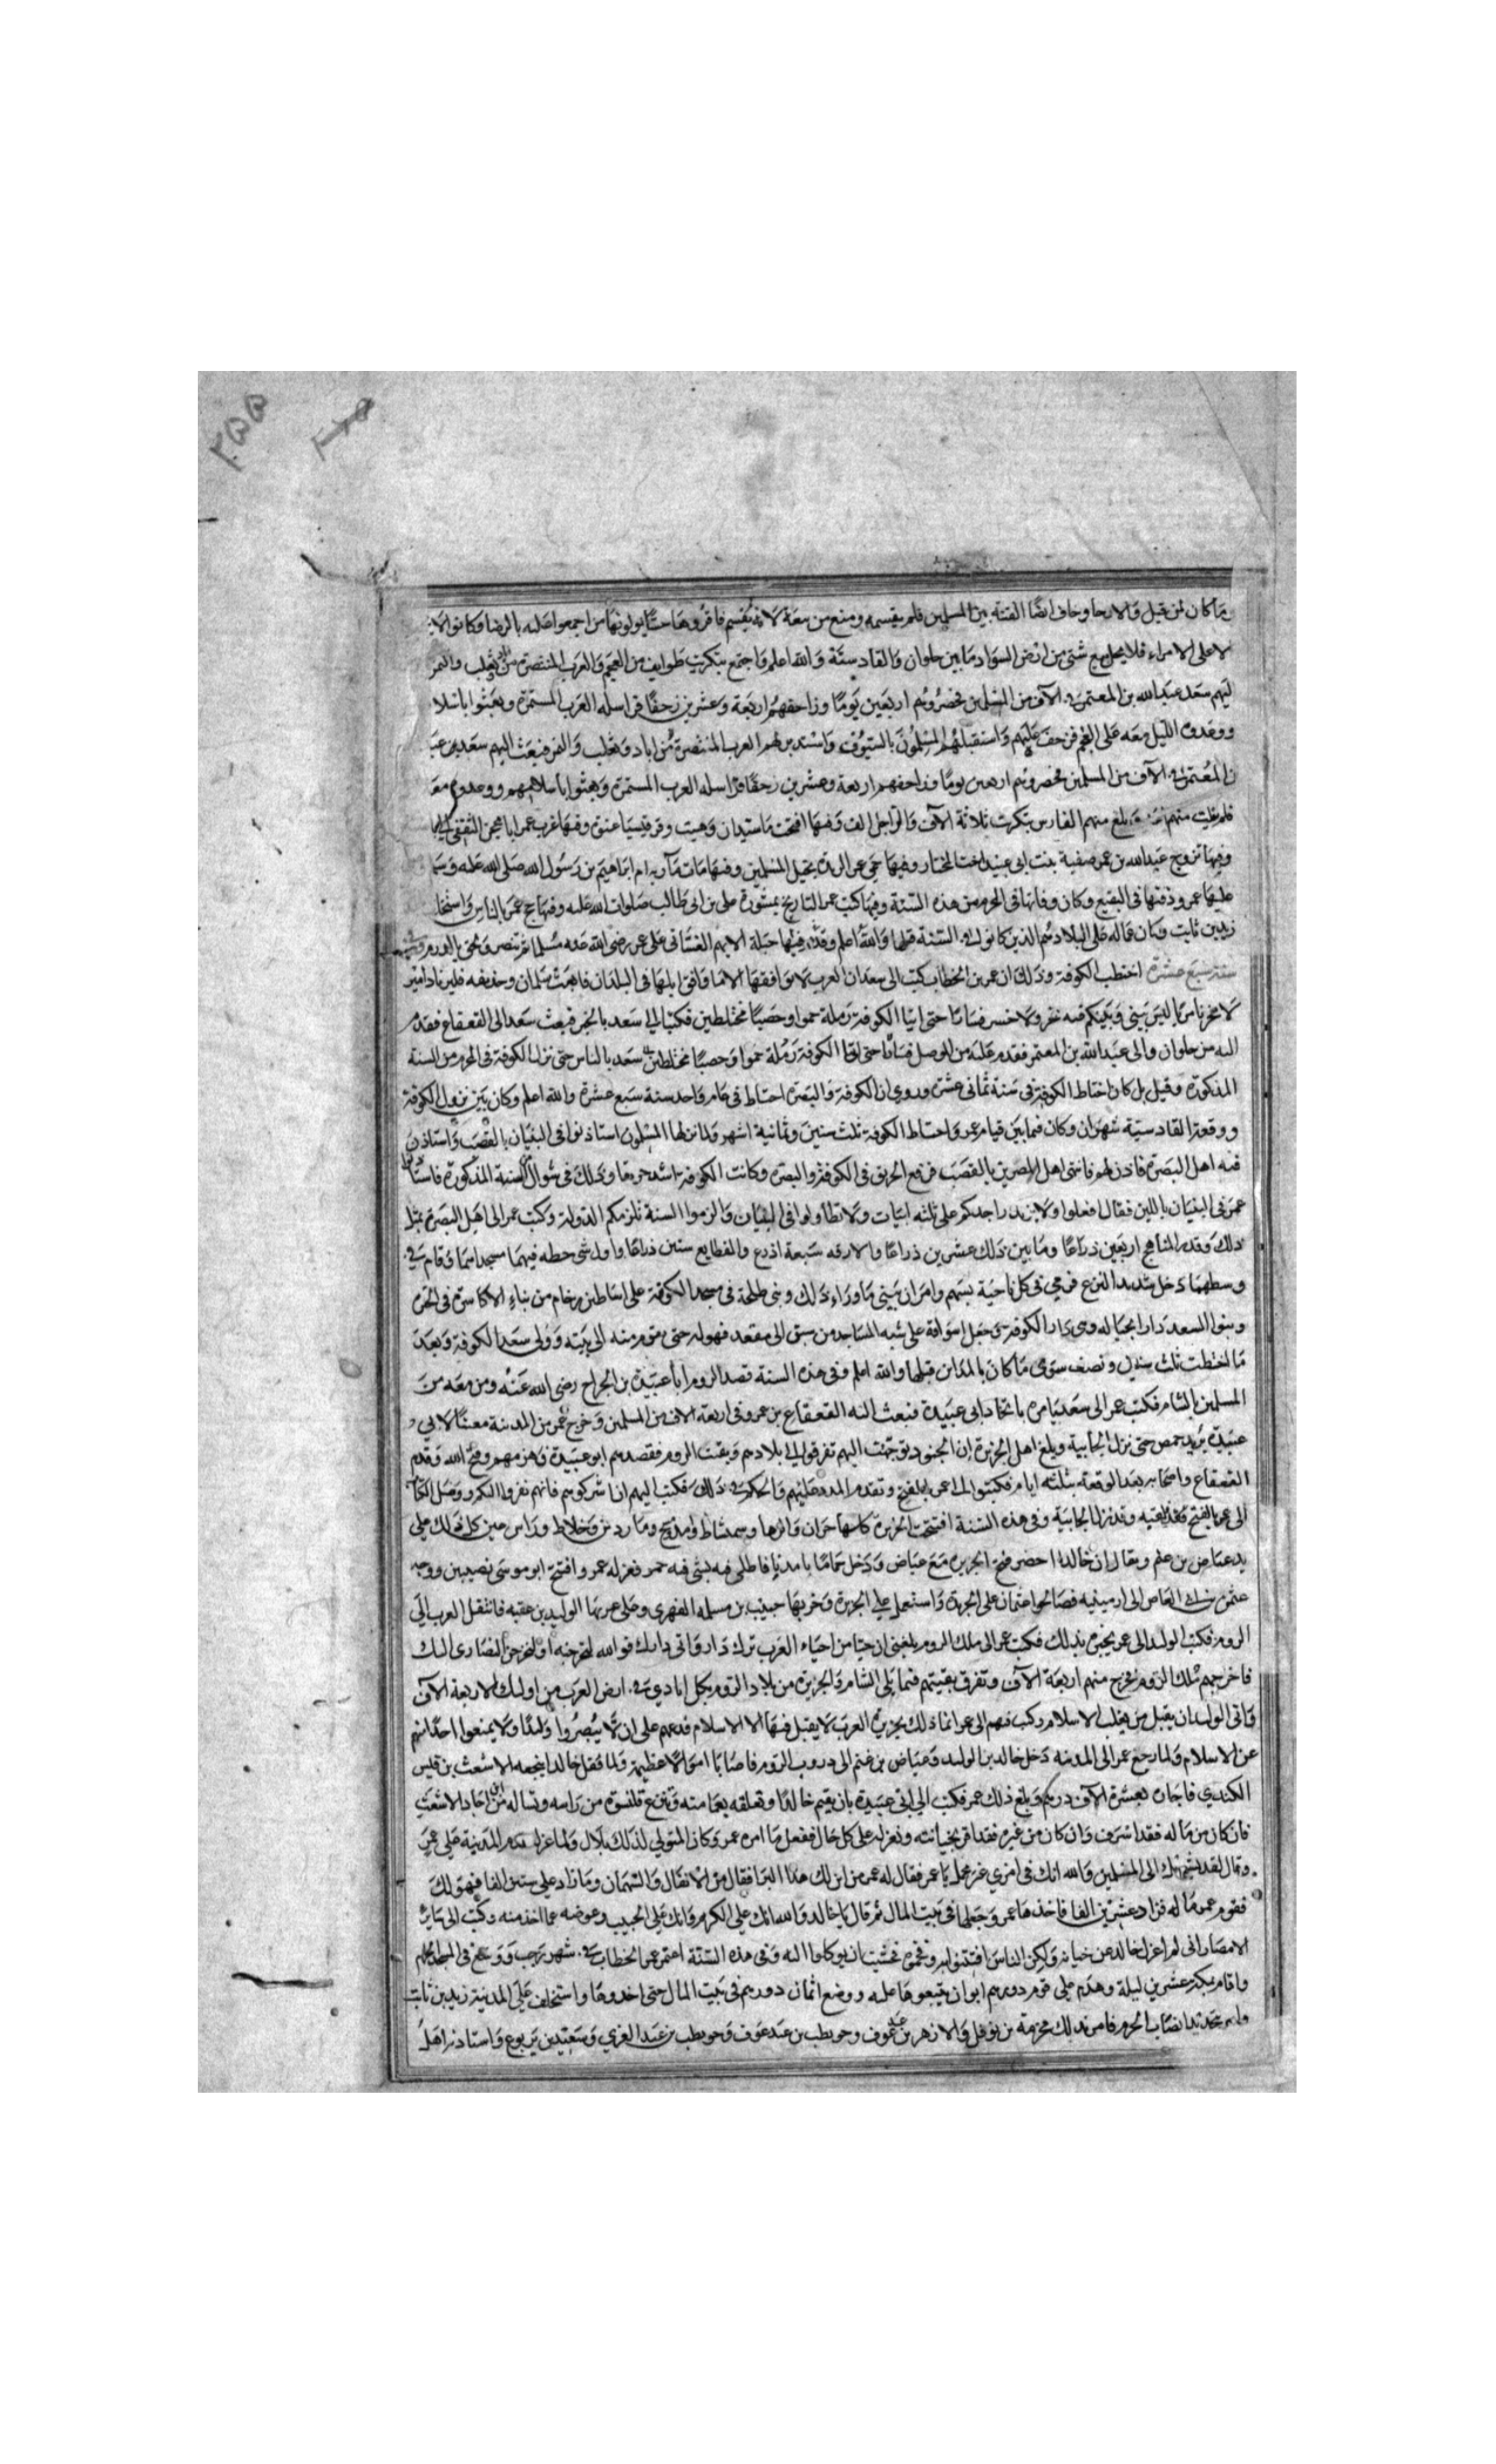 ما كان لمن قبل والارحا وخاف ايضا الفتنة بين المسلمين فلم يقسمه ومنع من بيعه لانه لم يقسم فاقروها حبسا يولونها من اجمعوا عليه بالرضا وكانوا لا
الا على الامراء فلا يحل بيع شئ من ارض السواد ما بين حلوان والقادسية والله اعلم واجتمع بتكريت طوايف من العجم والعرب المتنصرة من تغلب والنمر
اليهم سعد عبد الله بن المعتمر في الآف من المسلمين فحضروهم اربعين يوما وزاحفهم اربعة وعشرين زحفا فراسله العرب المستمرة وبعثوا باسلا
ووعدوه الليل معه على العجم فزحف عليهم واستقبلهم المسلمون بالسيوف واستدبرهم العرب المتنصرة من اياد وتغلب والنمر فبعث اليهم سعد بن عبد
بن المعتمر في الآف من المسلمين فحضروهم اربعين يوما وزاحفهم اربعة وعشرين زحفا فراسله العرب المستمرة وبعثوا باسلامهم ووعدوه معه
فلم يفلت منهم بلغ سهم الفارس بتكريت ثلاثة الآف والراجل الف وفيها افتحت ماسبدان وهيت وقرقيسيا عنوة وفيها غرب عمر ابا محجن الثقفي
وفيها تزوج عبد الله بن عمر صفية بنت ابي عبيد اخت المختار وفيها حمى عمر الربذة بخيل المسلمين وفيها ماتت مارية ام ابراهيم بن رسول الله صلى الله عليه وسلم
عليها عمر ودفنها في البقيع وكان وفاتها في المحرم من هذه السنة وفيها كتب عمر التاريخ بمشورة علي بن ابي طالب صلوات الله عليه وفيها حج عمر بالناس واستخلف
زيد بن ثابت وكان عماله على البلاد هم الذين كانوا في السنة قبلها والله اعلم وقدم فيها جبلة الايهم الغساني على عمر رضي الله عنه مسلما ثم تنصر ولحق بالروم
سنة سبع عشرة اختطب الكوفة وذلك ان عمر بن الخطاب كتب الى سعد ان العرب لا يوافقها الا ما وافق ابلها في البلدان فابعث سلمان وحذيفه فليرتادا منزلا
لا بحر ناس ليس بيني وبينكم فيه بحر ولا جسر فسارا حتى اتيا الكوفة رملة حمرا وحصبا مختلطين فكتبا الى سعد بالخبر فبعث سعد الى القعقاع فقدم
اليه من حلوان والى عبد الله بن المعتمر فقدم عليه من الموصل فسارا حتى اتيا الكوفة رملة حمرا وحصبا مختلطين سعد بالناس حتى نزل الكوفة في المحرم من السنة
المذكورة وقيل بل كان اختطاط الكوفة في سنة ثماني عشرة وروي ان الكوفة والبصرة اختطا في عام واحد سنة سبع عشرة والله اعلم وكان بين نزول الكوفة
ووقعة القادسية شهران وكان فيما بين قيام عمر واختطاط الكوفة ثلث سنين وثمانية اشهر ولما نزلها المسلمون استاذنوا في البنيان بالقصب واستاذن
فيه اهل البصرة فاذن لهم فابتنى اهل المصرين بالقصب فوقع الحريق في الكوفة والبصرة وكانت الكوفة اشد حريقا وذلك في شوال من السنة المذكورة فاستاذنوا
عمر في البنيان باللبن فقال افعلوا ولا يزيد احدكم على ثلثه ابيات ولا تطاولوا في البنيان والزموا السنة تلزمكم الدولة وكتب عمر الى اهل البصرة بمثل
ذلك وقدر المناهج اربعين ذراعا وما بين ذلك عشرين ذراعا والازقه سبعة اذرع والقطايع ستين ذراعا واول شئ خطه فيهما مسجداهما وقام في
وسطهما رجل شديد النزع فرمى في كل ناحية بسهم وامر ان يبنى ما وراء ذلك وبنى ظلة في مسجد الكوفة على اساطين رخام من بناء الاكاسرة في الحيرة
وبنوا لسعد دارا بحياله وهي دار الكوفة وجعل اسواقه على شبه المساجد من سبق الى مقعد فهو له حتى يقوم منه الى بيته وولي سعد الكوفة وبعد
ما اختطت ثلث سنين ونصف سوى ما كان بالمداين قبلها والله اعلم وفي هذه السنة قصد الروم ابا عبيدة بن الجراح رضي الله عنه ومن معه من
المسلمين بالشام فكتب عمر الى سعد يامره بانجاد ابي عبيدة فبعث اليه القعقاع بن عمرو في اربعة الاف من المسلمين وخرج عمر من المدينة معينا لابي
عبيدة يريد حمص حتى نزل الجابية وبلغ اهل الجزيرة ان الجنود توجهت اليهم تفرقوا الى بلادهم وبقيت الروم فقصدهم ابو عبيدة فهزمهم وفتح الله وقدم
القعقاع واصحابه بعد الوقعة بثلثه ايام فكتبوا الى عمر بالفتح وتقدم المدد عليهم والحكم في ذلك فكتب اليهم ان اشركوهم فانهم نفروا اليكم ووصل الكتاب
الى عمر بالفتح فلقيه وقد نزل الجابية وفي هذه السنة افتتحت الجزيرة كلها حران والرها وسمشاط وماردين وخلاط وراس عين كل ذلك على
يد عياض بن غنم ويقال ان خالدا حضر فتح الجزيره مع عياض ودخل حماما بامد فاطلى فيه بشئ فيه خمر فعزله عمر وافتتح ابو موسى نصيبين ووجه
عثمن بن ابي العاص الى ارمينيه فصالحوا عثمان على الجزية واستعمل على الجزيرة وحربها حبيب بن مسلمه الفهري وعلى عربها الوليد بن عقبه فانتقل العرب الى
الروم فكتب الوليد الى عمر يخبره بذلك فكتب عمر الى ملك الروم بلغني ان حيا من احياء العرب ترك دارنا واتى دارك فوالله لتخرجنه او لنخرجن النصارى اليك
فاخرجهم ملك الروم فخرج منهم اربعة الآف وتفرق بقيتهم فيما يلي الشام والجزيرة من بلاد الروم فكل ايادي في ارض العرب من اولئك الاربعة الآف
وابى الوليد ان يقبل من تغلب الا الاسلام وكتب فيهم الى عمر انما ذلك بجزيرة العرب لا يقبل فيها الا الاسلام فدعهم على ان لا ينصروا وليدا ولا يمنعوا احدا منهم
عن الاسلام ولما رجع عمر الى المدينه دخل خالد بن الوليد وعياض بن غنم الى دروب الروم فاصابا اموالا عظيمة ولما قفل خالد انتجعه الاشعث بن قيس
الكندي فاجازه بعشرة الآف درهم وبلغ ذلك عمر فكتب الى ابي عبيدة بان يقيم خالدا وتعقله بعمامته وتنزع قلنسوته من راسه وتساله من اين اجاز الاشعث
فان كان من ماله فقد اسرف وان كان من غيره فقد اقر بخيانته وتعزله على كل حال ففعل ما امره عمر وكان المتولي لذلك بلال ولما عزله قدم المدينة على عمر
وقال لقد شكوتك الى المسلمين والله انك في امري غير مجمل يا عمر فقال له عمر من اين لك هذا الثرا فقال من الانفال والسهمان وما زاد على ستين الفا فهو لك
فقوم عمر ماله فزاد عشرين الفا فاخذها عمر وجعلها في بيت المال ثم قال يا خالد والله انك علي لكريم وانك الي الحبيب وعوضه عما اخذ منه وكتب الى ساير
الامصار اني لم اعزل خالد عن خيانة ولكن الناس افتتنوا به وفخموه فخشيت ان يوكلوا اليه وفي هذه السنة اعتمر عمر الخطاب في شهر رجب ووسع في المسجد الحرام
واقام بمكة عشرين ليلة وهدم على قوم دورهم ابوا ان يبيعوها عليه ووضع اثمان دورهم في بيت المال حتى اخذوها واستخلف على المدينة زيد بن ثابت
وامر بتجديد انصاب الحرم فامر بذلك مخرمة بن نوفل والازهر بن عبد عوف وحويطب بن عبد عوف وحويطب بن عبد العزي وسعيد بن يربوع واستاذن اهل